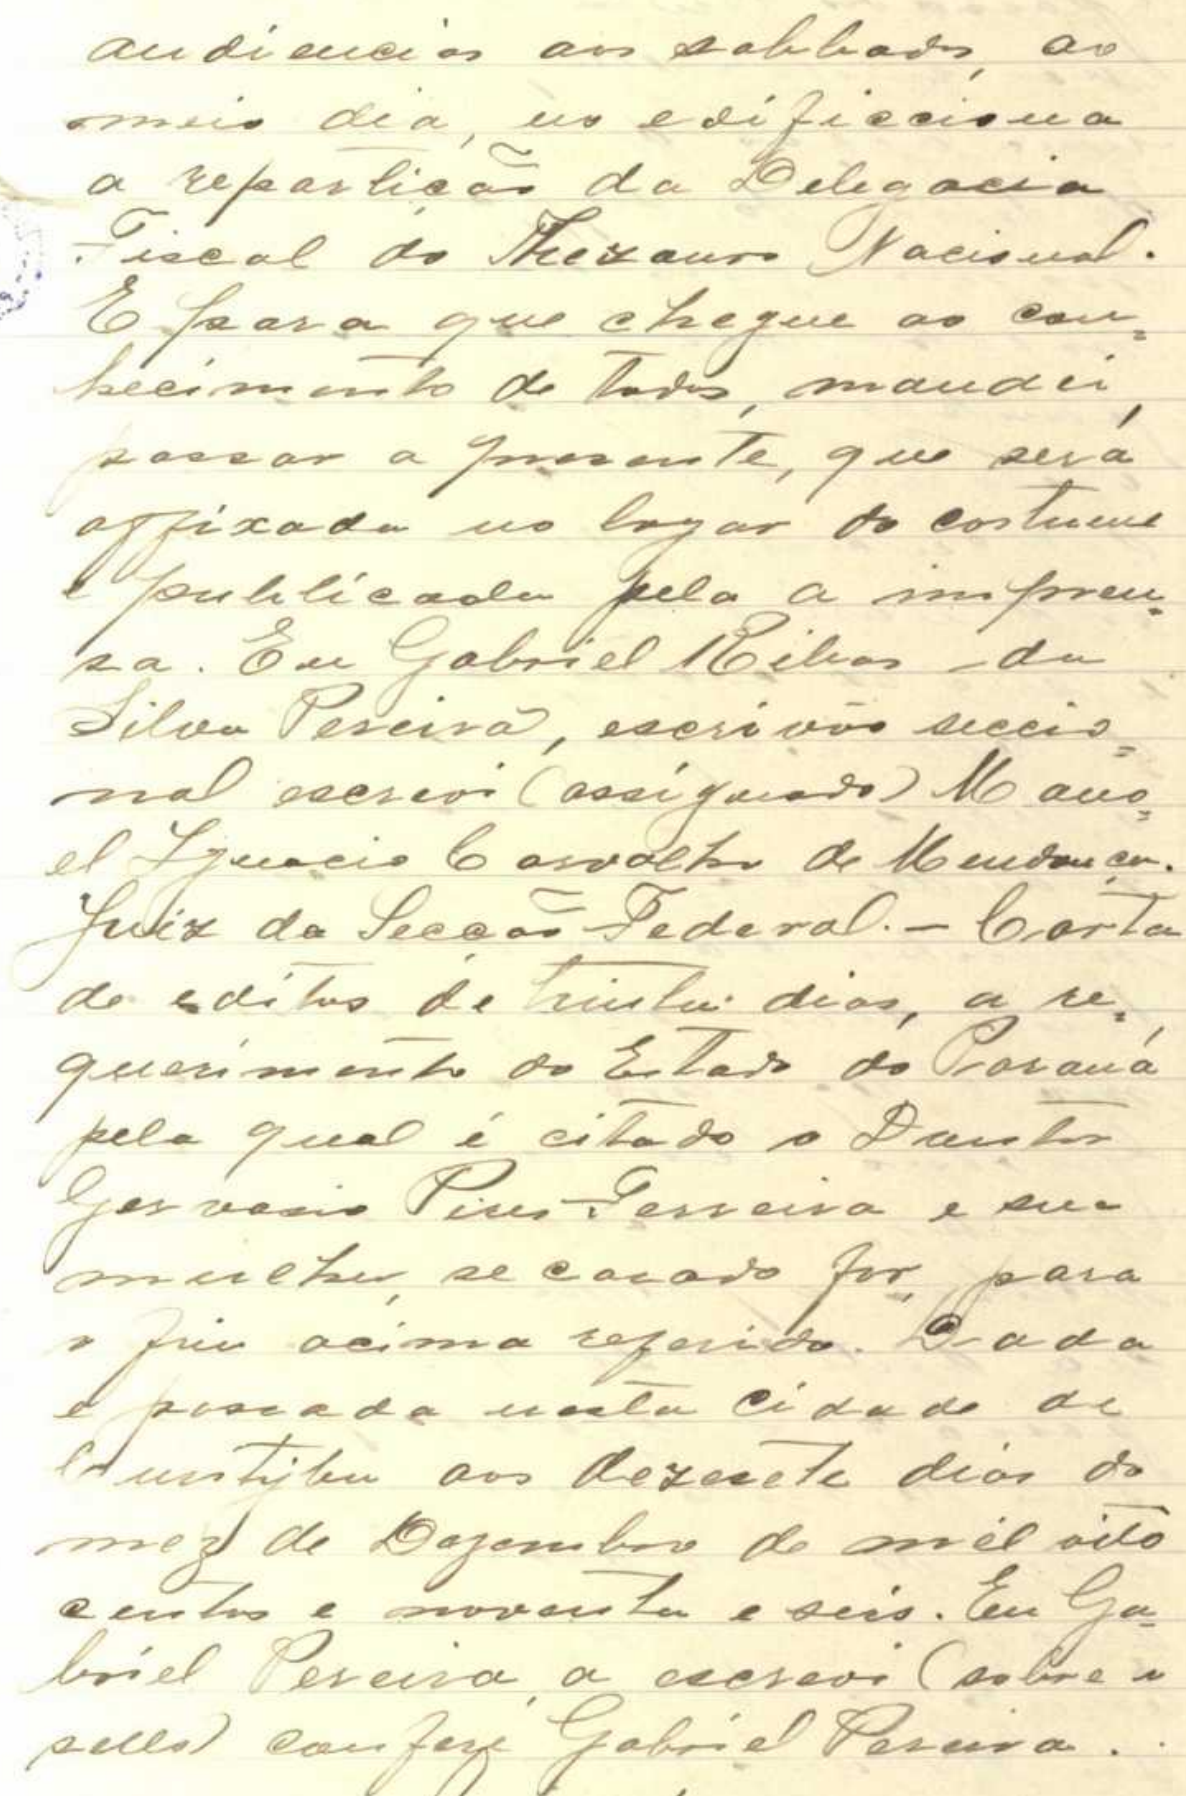 audiencias aos sabbados, ao
meio dia, no edificciona
a repartição da Delegacia
Fiscal do Thezouro Nacional.
E para que chegue ao con=
hecimento de todos, mandei
passar a presente, que será
affixada no logar do costume
e publicada pela a impren=
sa. Eu Gabriel Ribas da
Silva Pereira, escrivão seccio=
nal escrevi (assignado) Mano=
el Ignacio Carvalho de Mendonça.
Juiz da Secção Federal. – Carta
de editos de trinta dias, a re=
querimento do Estado do Paraná
pela qual é citado o Doutor
Gervasio Pires Ferreira e sua
mulher, se casado for, para
o fim acima referido. Dada
e passada nesta cidade de
Curityba aos dezesete dias do
mez de Dezembro de mil oito
centos e noventa e seis. Eu Ga=
briel Pereira, a escrevi (sobre o
sello) conferi Gabriel Pereira.